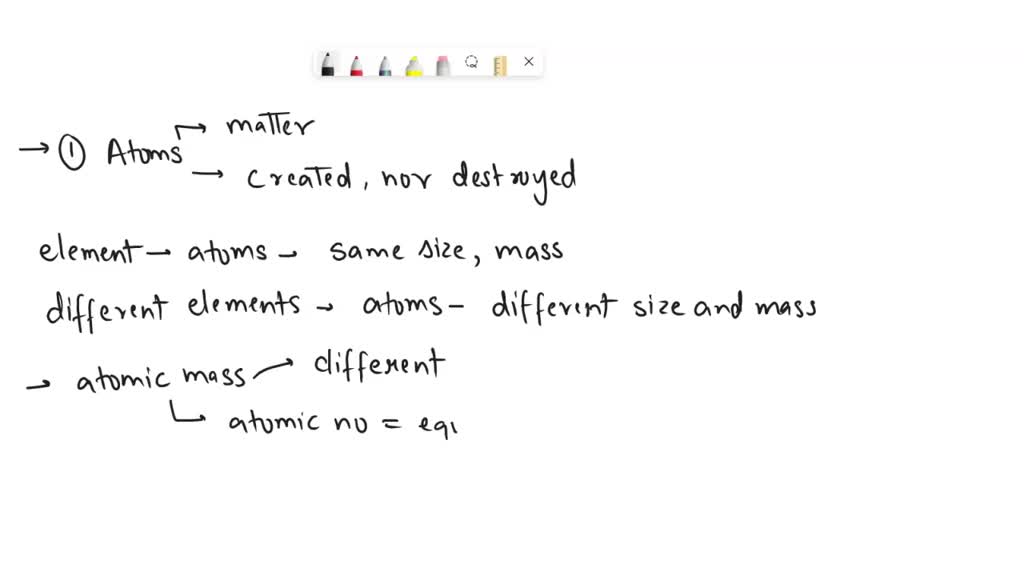 → matter
→ ① Atoms
→ created, nor destroyed
element → atoms → same size, mass
different elements → atoms - different size and mass
→ different
→ atomic mass
↳ atomic no = equ